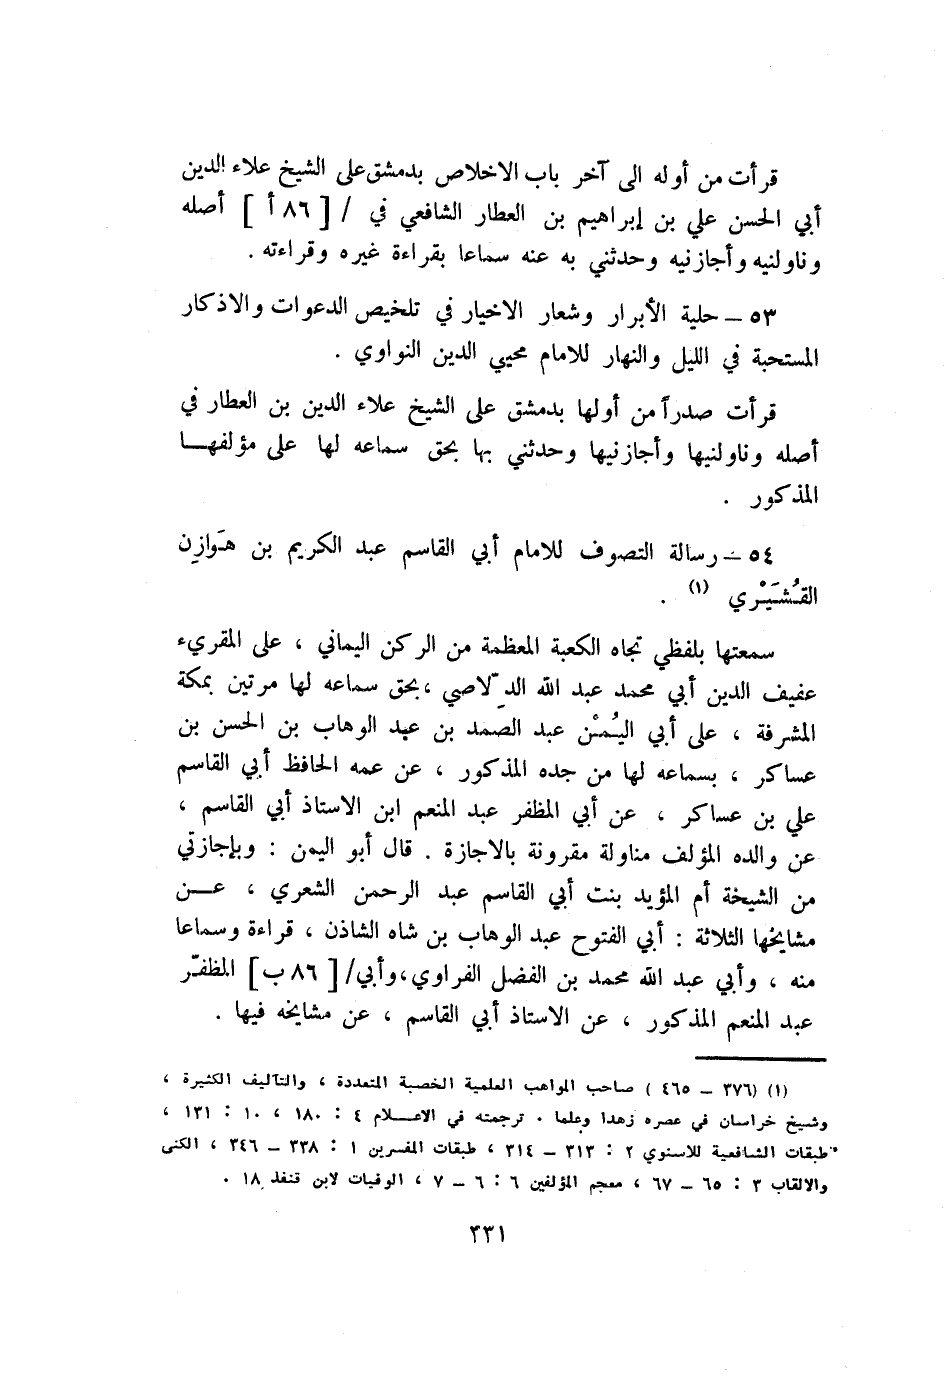 قرأت من أوله الى آخر باب الاخلاص بدمشق على الشيخ علاء الدين
أبي الحسن علي بن إبراهيم بن العطار الشافعي في / [ ٨٦ أ ] أصله
وناولنيه وأجازنيه وحدثني به عنه سماعا بقراءة غيره وقراءته .
٥٣ – حلية الأبرار وشعار الاخيار في تلخيص الدعوات والاذكار
المستحبة في الليل والنهار للامام محيي الدين النواوي .
قرأت صدراً من أولها بدمشق على الشيخ علاء الدين بن العطار في
أصله وناولنيها وأجازنيها وحدثني بها بحق سماعه لها على مؤلفهــا
المذكور .
٥٤ – رسالة التصوف للامام أبي القاسم عبد الكريم بن هَوازِن
القُشَيْري (١) .
سمعتها بلفظي تجاه الكعبة المعظمة من الركن اليماني ، على المقريء
عفيف الدين أبي محمد عبد الله الدِّلاصي ، بحق سماعه لها مرتين بمكة
المشرفة ، على أبي اليُمْن عبد الصمد بن عبد الوهاب بن الحسن بن
عساكر ، بسماعه لها من جده المذكور ، عن عمه الحافظ أبي القاسم
علي بن عساكر ، عن أبي المظفر عبد المنعم ابن الاستاذ أبي القاسم ،
عن والده المؤلف مناولة مقرونة بالاجازة . قال أبو اليمن : وبإجازتي
من الشيخة أم المؤيد بنت أبي القاسم عبد الرحمن الشعري ، عــن
مشايخها الثلاثة : أبي الفتوح عبد الوهاب بن شاه الشاذن ، قراءة وسماعا
منه ، وأبي عبد الله محمد بن الفضل الفراوي ، وأبي / [ ٨٦ ب ] المظفّر
عبد المنعم المذكور ، عن الاستاذ أبي القاسم ، عن مشايخه فيها .
(١) (٣٧٦ – ٤٦٥ ) صاحب المواهب العلمية الخصبة المتعددة ، والتآليف الكثيرة ،
وشيخ خراسان في عصره زهدا وعلما . ترجمته في الاعــلام ٤ : ١٨٠ ، ١٠ : ١٣١ ،
طبقات الشافعية للاسنوي ٢ : ٣١٣ – ٣١٤ ، طبقات المفسرين ١ : ٣٣٨ – ٣٤٦ ، الكنى
والالقاب ٣ : ٦٥ – ٦٧ ، معجم المؤلفين ٦ : ٦ – ٧ ، الوفيات لابن قنفد ١٨ .
٣٣١